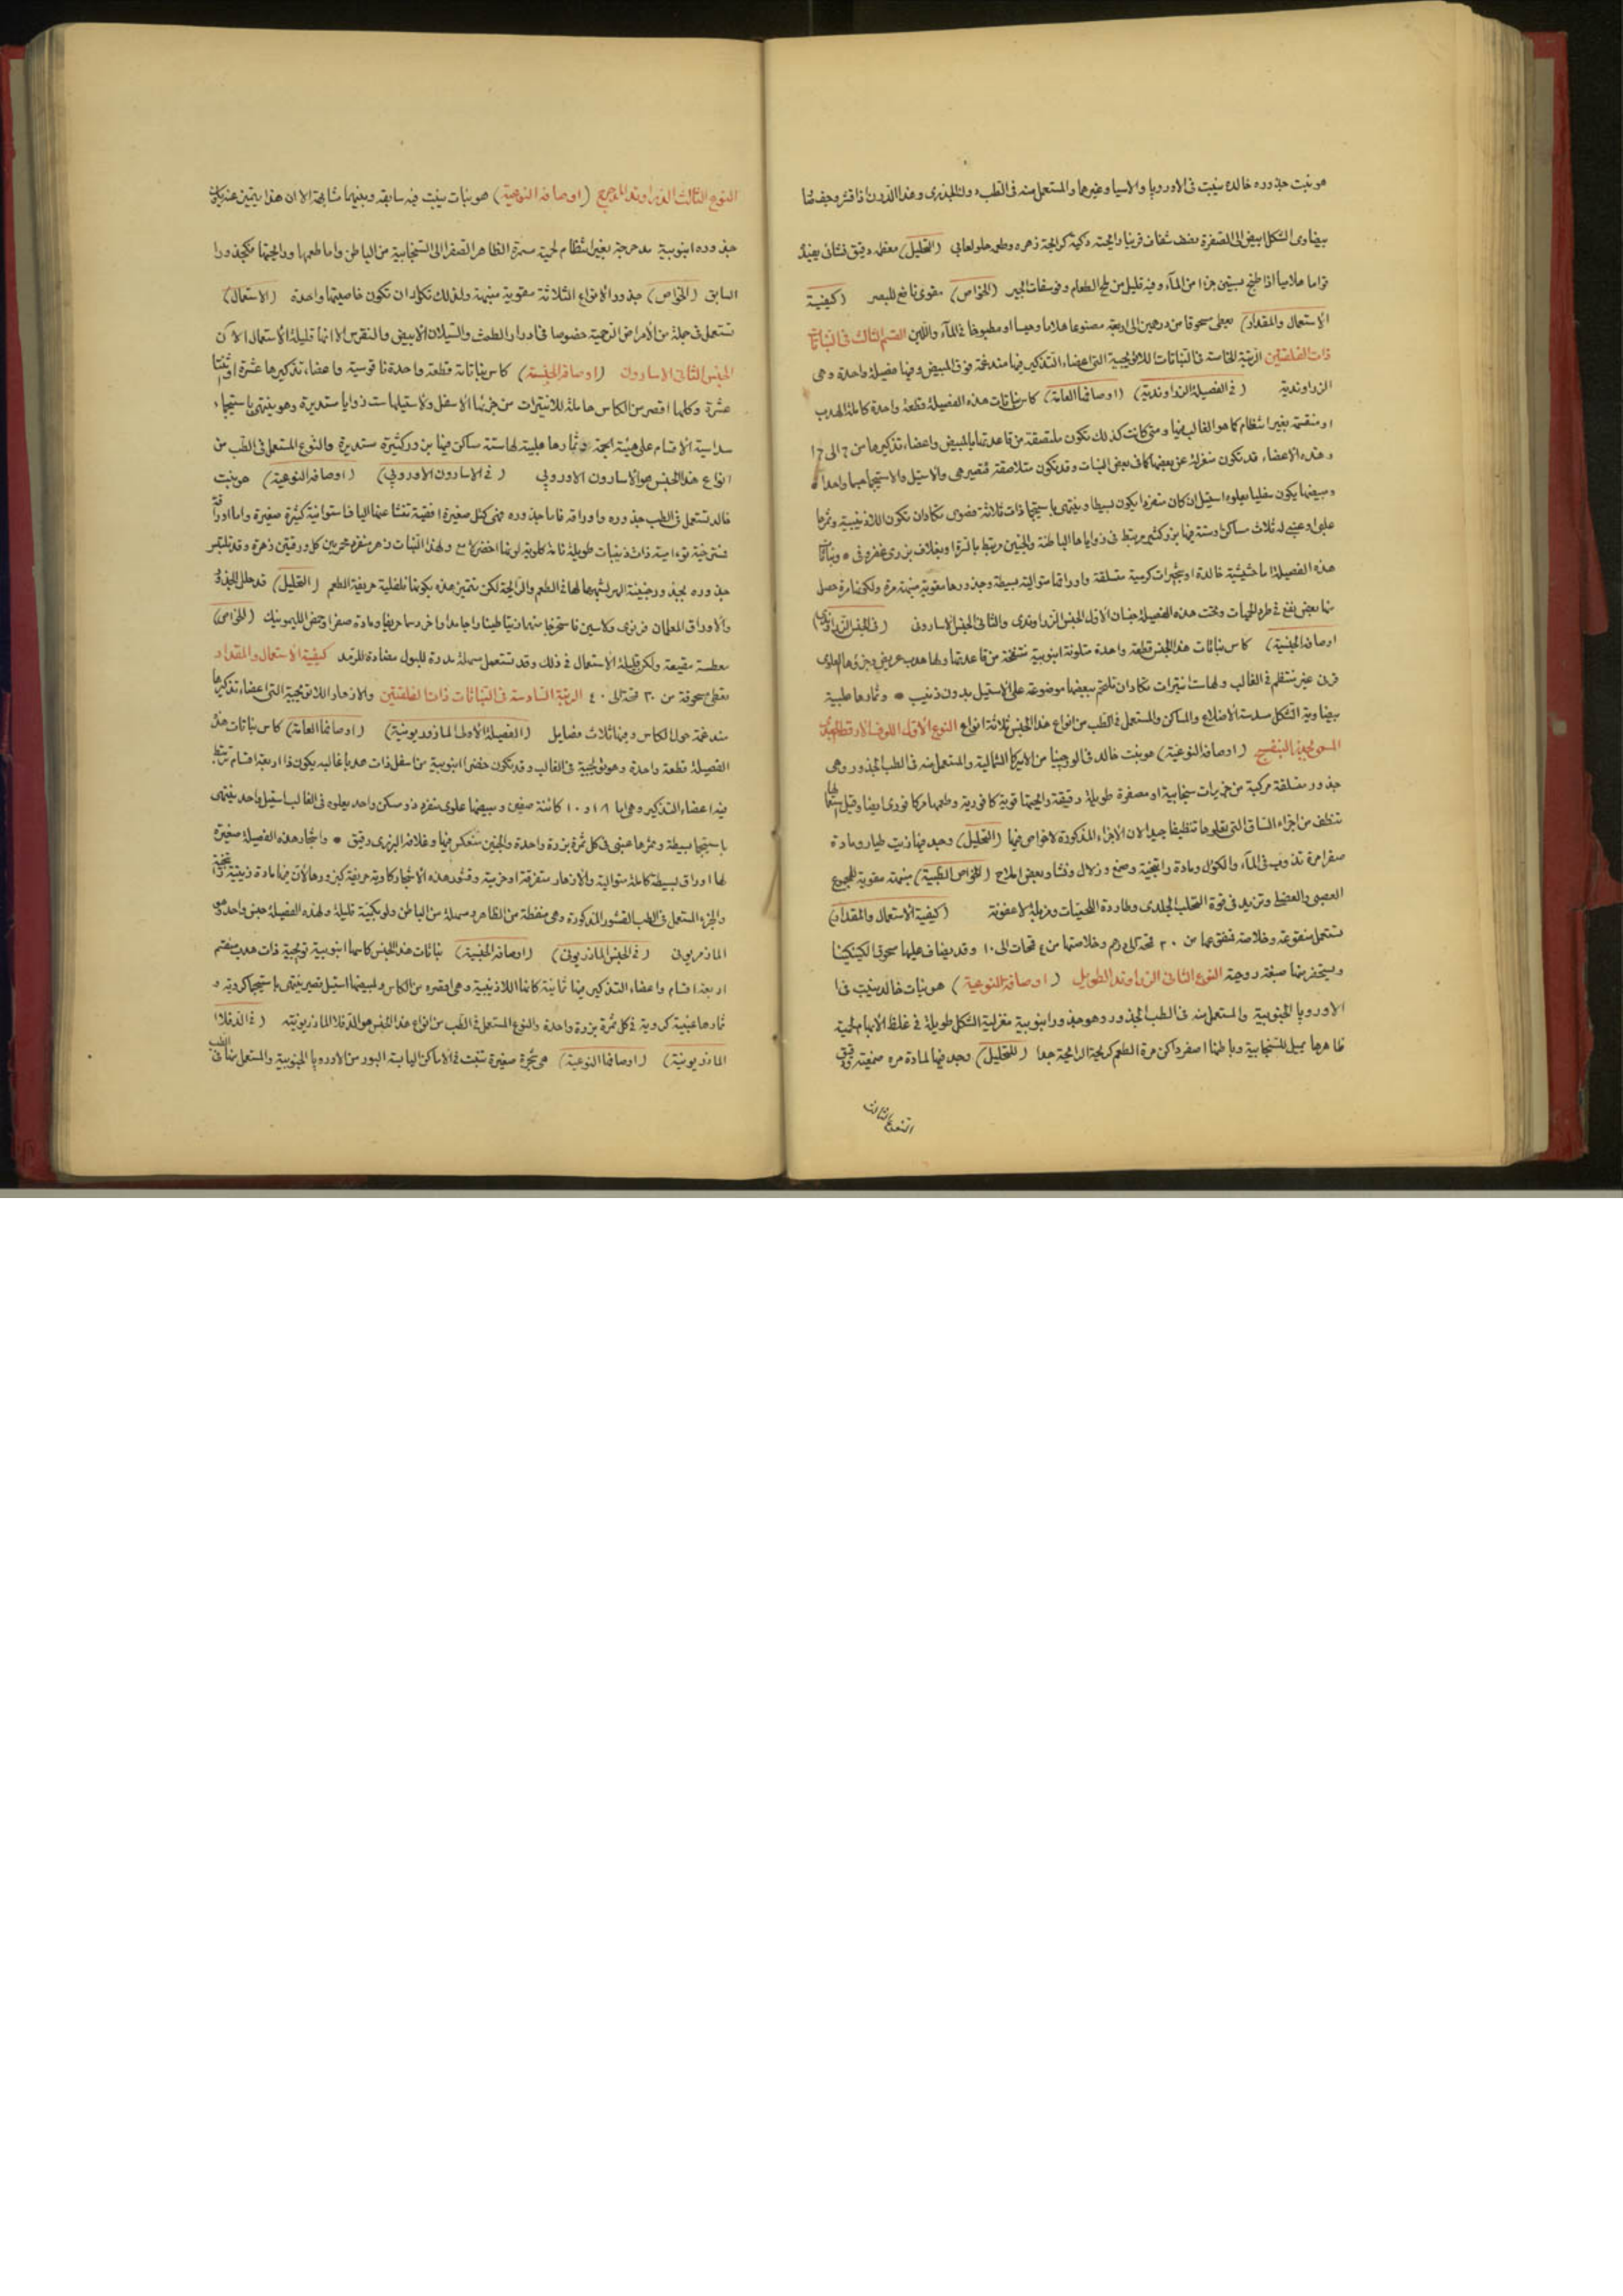 هو نبت جذوره خالدة ينبت فى الاوروپا والاسيا وغيرها والمستعمل منه فى الطب
بيضاوى الشكل ابيض الى الصفرة نصف شفاف قريبا رايحته ذكية كرايحة زهره وطعمه حلو لعابى (التحليل) معظمه دقيق نشائى يعيد
قواما هلاميا اذا طبخ بستين جزا من المآء وفيه قليل من ملح الطعام وفوسفات الجير (الخواص) مقوى نافع للبصر (كيفية
الاستعمال والمقدار) يعطى مسحوقا من درهمين الى اربعة مصنوعا هلاما وحسا او مطبوخا فى المآء واللبن القسم الثالث فى النباتات
ذات الفلقتين الرتبة الخامسة فى النباتات اللاتويجية التى اعضاء التذكير فيها مندغمة فوق المبيض وفيها فصيلة واحدة وهى
الزراوندية (فى الفصيلة الزراوندية) (اوصافها العامة) كاس نباتات هذه الفصيلة قطعة واحدة كاملة الهدب
او منقسمة بغير انتظام كما هو الغالب فيها ومتى كانت كذلك تكون ملتصقة من قاعدتها بالمبيض واعضاء تذكيرها من ٦ الى ١٢
وهذه الاعضاء قد تكون منعزلة عن بعضها كما فى بعض النبات وقد تكون متلاصقة فتصير هى والاستيل والاستيجما جسما واحدا
ومبيضها يكون سفليا يعلوه استيل ان كان منفردا يكون بسيطا وينتهى باستيجما ذات ثلاثة فصوص تكاد ان تكون اللاذنيبية وثمرها
علبى او عنبى له ثلاث مساكن او ستة فيها بزر كثير مرتبط فى زواياها الباطنة والجنين مرتبط
هذه الفصيلة اما حشيشية خالدة او شجيرات كرمية متسلقة واوراقها متوالية بسيطة وجذورها مقوية منبهة مرة
منها بعض نفع فى طرد الحميات وتحت هذه الفصيلة جنسان الاول الجنس الزراوندى والثانى الجنس الاسارون (فى الجنس الزراوندى)
اوصافه الجنسية) كاس نباتات هذا الجنس قطعة واحدة متلونة انبوبية منتفخة من قاعدتها ولها هدب عريض وجزؤها العلوى
قرنى غير منتظم فى الغالب ولها ست انتيرات تكاد ان تلتحم ببعضها موضوعة على الاستيل بدون ذنيب * وثمارها علبية
بيضاوية الشكل مسدسة الاضلاع والمساكن والمستعمل فى الطب من انواع هذا الجنس ثلاثة انواع النوع الاول
(اوصافه النوعية) هو نبت خالد فى الورجينيا من الامريكا الشمالية والمستعمل منه فى الطب الجذور وهى
جذور متسلقة مركبة من جزيات سنجابية او مصفرة طويلة رقيقة رايحتها قوية كافورية وطعمها مر كافورى ايضا وقبل
تنظف من اجزاء الساق التى تعلوها تنظيفا جيدا لان الاجزاء المذكورة لا خواص فيها (التحليل) وجد فيها زيت طيار ومادة
صفرا مرة تذوب فى المآء والكؤل ومادة راتنجية وصمغ وزلال ونشا وبعض املاح (الخواص الطبية) منبهة مقوية للمجموع
العصبى والعضلى وتزيد فى قوة التحلب الجلدى وطاردة للحميات ومزيلة للاعفونة (كيفية الاستعمال والمقدار)
تستعمل منقوعة وخلاصة فنقوعها من ٢٠ قحة الى درهم وخلاصتها من ٤ قحات الى ١٠ وقد يضاف عليها مسحوق الكينكينا
ويستحضر منها صبغة روحية النوع الثانى الزراوند الطويل (اوصافه النوعية) هو نبات خالد ينبت فى
الاوروپا الجنوبية والمستعمل منه فى الطب الجذور وهو جذور انبوبية مغزلية الشكل طويلة فى غلظ الابهام لحمية
ظاهرها يميل للسنجابية وباطنها اصفر داكن مرة الطعم كريهة الرايحة جدا (التحليل) وجد فيها لمادة مره صمغية ودقيق
النوع الثالث
النوع الثالث الزراوند المدحرج (اوصافه النوعية) هو نبات ينبت فيه سابقه وبينهما مشابهة الا ان هذا يتميز عنه بكون
جذوره انبوبية مدحرجة بغير انتظام لحمية سمرة الظاهر الصفرا الى السنجابية من الباطن واما طعمها ورايحتها فكجذور
السابق (الخواص) جذور الانواع الثلاثة مقوية منبهة ولذلك تكاد ان تكون خاصيتها واحدة (الاستعمال)
تستعمل فى جملة من الامراض الرحمية خصوصا فى ادرار الطمث والسيلان الابيض والنقرس الا انها قليلة الاستعمال الآن
الجنس الثانى الاسارون (اوصافه الجنسية) كاس نباتاته قطعة واحدة ناقوسية واعضاء تذكيرها عشرة او ثنتا
عشرة وكلها اقصر من الكاس حاملة للانتيرات من جزئها الاسفل والاستيل لها ست زوايا مستديرة وهو ينتهى باستيجماء
سداسية الاقسام على هيئة النجمة وثمارها علبية لها ستة مساكن فيها بزور كثيرة مستديرة والنوع المستعمل فى الطب من
انواع هذا الجنس هو الاسارون الاوروپى (فى الاسارون الاوروپى) (اوصافه النوعية) هو نبت
خالد تستعمل فى الطب جذوره واوراقه فاما جذوره فهى كتل صغيرة افقية تنشا عنها اليافا اسطوانية كثيرة صغيرة واما اوراقه
ذات ذنيبات طويلة تامة كلوية لونها اخضر لامع ولهذا النبات زهر منفرد يخرج بين كل ورقتين زهرة وقد تلتبس
جذوره بجذور حشيشة الهر لشبهها لها فى الطعم والرايحة لكن تتميز هذه بكونها فلفلية حريفة الطعم (التحليل) قد حلل الجذور
والاوراق المعلمان فنوى ولاسين فاستخرجا منهما زيتا طيارا جامدا واخر دسما حريفا ومادة صفرا وحمض الليمونيك (الخواص)
معطسة مقيئة ولكن قليلة الاستعمال فى ذلك وقد تستعمل مسهلة مدرة للبول مضادة للرمد كيفية الاستعمال والمقدار
تعطى مسحوقة من ٣٠ قحة الى ٤٠ الرتبة السادسة فى النباتات ذات الفلقتين والازهار اللاتويجية التى اعضاء تذكيرها
مندغمة حول الكاس وفيها ثلاث فصايل (الفصيلة الاولى المازريونية) (اوصافها العامة) كاس نباتات هذه
الفصيلة قطعة واحدة وهو تويجية فى الغالب وقد تكون خضرا انبوبية من اسفل ذات هدب غالبه يكون ذا اربعة اقسام ترتبط
فيه اعضاء التذكير وهى اما ٨ او ١٠ كائنة صفين ومبيضها علوى منفرد ذو مسكن واحد يعلوه فى الغالب استيل واحد ينتهى
باستيجما بسيطة وثمرها عنبى فى كل ثمرة بزرة واحدة والجنين منعكس فيها وغلافه البزرى رقيق * واشجار هذه الفصيلة صغيرة
لها اوراق بسيطة كاملة متوالية والازهار متفرقة او حزمية وقشور هذه الاشجار كاوية حريفة كبزورها لان فيها مادة زيتية
والجزء المستعمل فى الطب القشور المذكورة وهى منفطة من الظاهر ومسهلة من الباطن ولو بكمية قليلة ولهذه الفصيلة جنس واحد وهو
المازريون (فى الجنس المازريونى) (اوصافه الجنسية) نباتات هذا الجنس كاسها انبوبية تويجية ذات هدب منقسم
اربعة اقسام واعضاء التذكير فيها ثمانية كائنا اللاذنيبية وهى اقصره من الكاس ولمبيضها استيل قصير ينتهى باستيجما كروية و
ثمارها عنبية كروية فى كل ثمرة بزرة واحدة والنوع المستعمل فى الطب من انواع هذا الجنس هو الدفلا المازريونية (فى الدفلا
المازريونية) (اوصافها النوعية) هى شجرة صغيرة تنبت فى الاماكن اليابسة البور من الاوروپا الجنوبية والمستعمل منها فى الطب